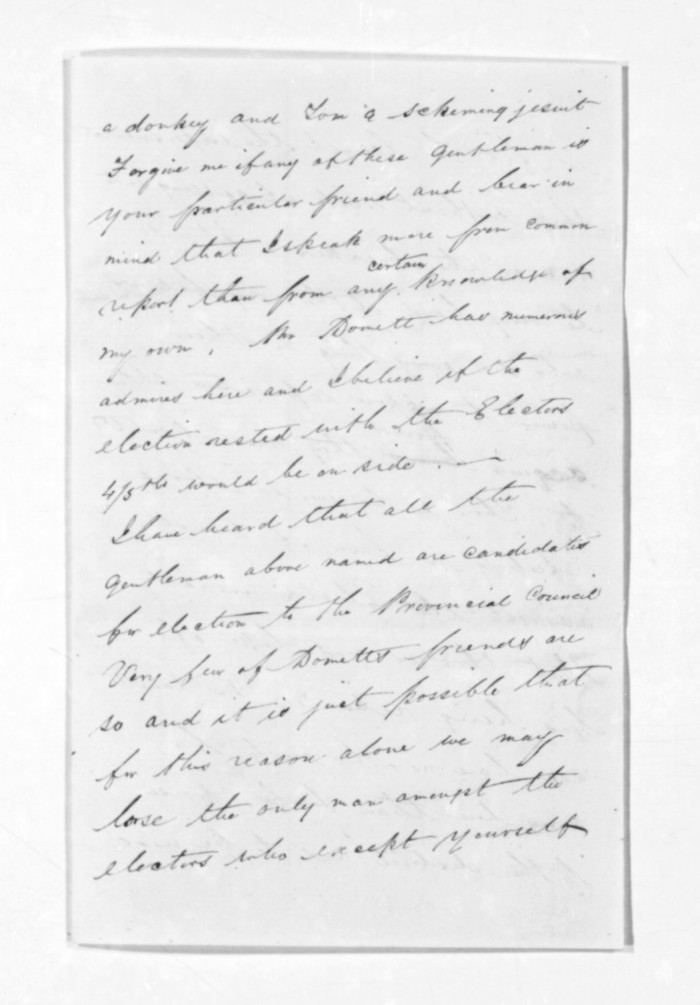 a donkey and Tom a scheming jesuit
Forgive me if any of these Gentleman is
your particular friend and bear in
mind that I speak more from common
certain
report than from any knowledge of
my own. Mr Domett has numerous
admires here and I believe if the
election rested with the Electors
4/5ths would be on side. —
I have heard that all the
gentleman above named are candidates
for election to the Provincial Council
Very few of Dometts friends are
so and it is just possible that
for this reason alone we may
lose the only man amongst the
electors who except yourself